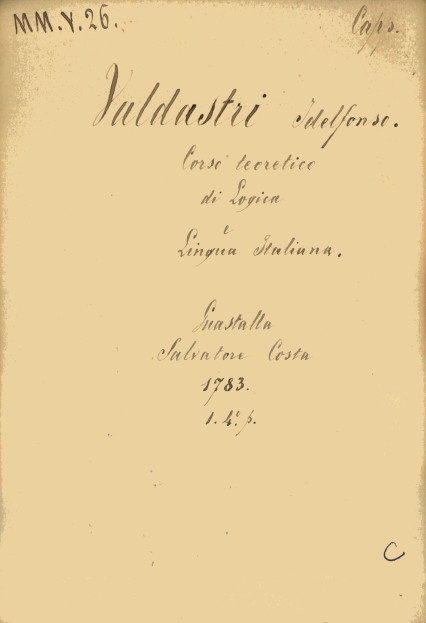 MM.V.26.
Caps.
Valdastri Idelfonso.
Corso teoretico
di Logica
e
Lingua Italiana.
Guastalla
Salvatore Costa
1783.
1. 4º. p.
C